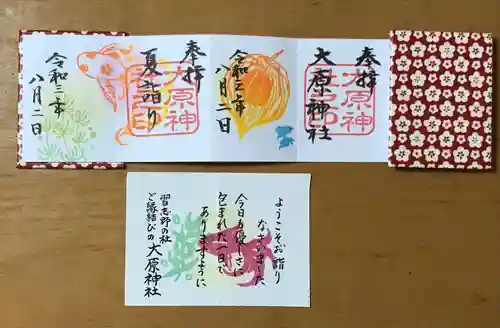 奉拝
大原神社
大原神社印
令和三年
八月二日
奉拝
夏詣り
大原神社印
令和三年
八月二日
ようこそお詣り
なさいました
今日も優しさに
包まれた一日で
ありますように
習志野の社
ご縁結びの大原神社